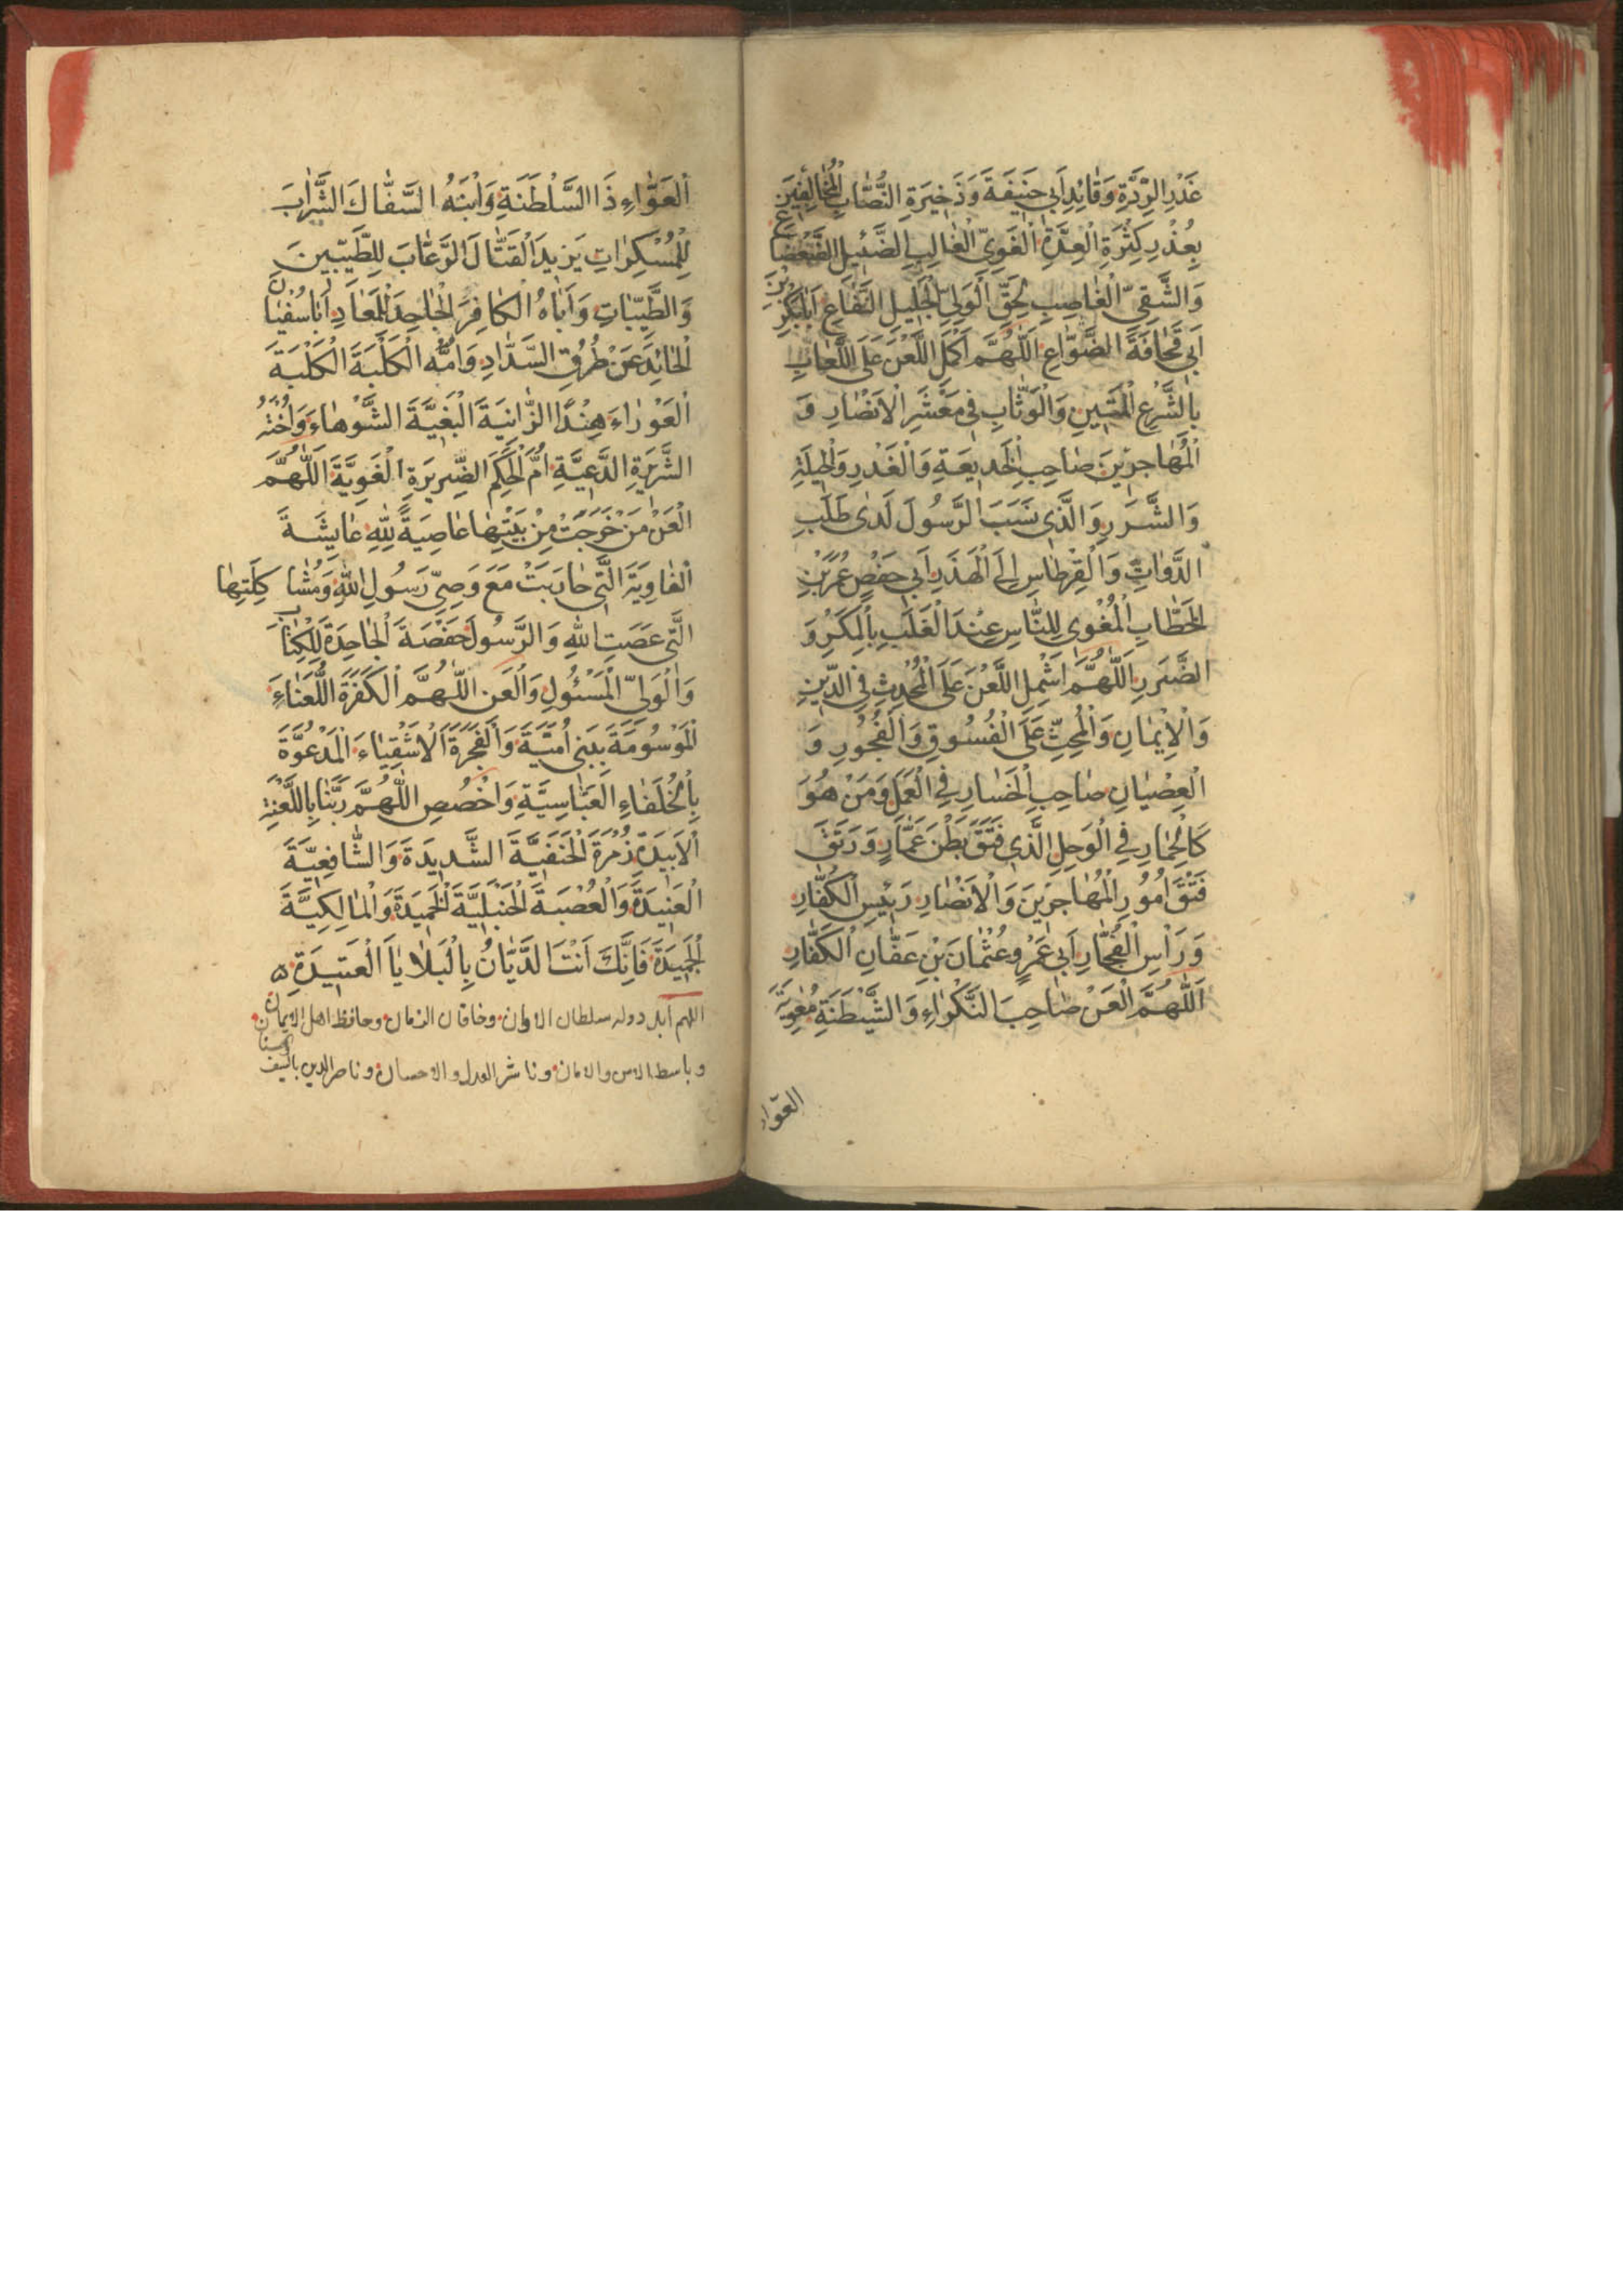 غَدْرِ الرِّدَّةِ وَقَائِدِ اَبِي حَنِيفَةَ وَذَخِيرَةِ النُّصَّابِ الْمُخَالِفِينَ
بِعُذْرِ كَثْرَةِ الْعِدَّةِ الْغَوِيِّ الْغَالِبِ الضَّئِيلِ
وَالشَّقِيِّ الْغَاصِبِ لِحَقِّ الْوَلِيِّ الْجَلِيلِ النَّفَّاعِ اَبَابَكْرِ بْنِ
اَبِي قُحَافَةَ الضَّوَّاعِ اَللّٰهُمَّ اَكْمِلِ اللَّعْنَ عَلَى اللَّعَّابِ
بِالشَّرْعِ الْمَتِينِ وَالْوَثَّابِ فِي مَعْشَرِ الْاَنْصَارِ وَ
الْمُهَاجِرِينَ صَاحِبِ الْخَدِيعَةِ وَالْغَدْرِ وَالْحِيلَةِ
وَالشَّرَرِ وَالَّذِي نَسَبَ الرَّسُولَ لَدَى طَلَبِ
الدَّوَاتِ وَالْقِرْطَاسِ اِلَى الْهَذَرِ اَبِي حَفْصٍ عُمَرَ بْنِ
الْخَطَّابِ الْمُغْوِي لِلنَّاسِ عِنْدَ الْغَلَبِ بِالْمَكْرِ وَ
الضَّرَرِ اَللّٰهُمَّ اَشْمِلِ اللَّعْنَ عَلَى الْمُحْدِثِ فِي الدِّينِ
وَالْاِيْمَانِ وَالْمُحِثِّ عَلَى الْفُسُوقِ وَالْفُجُورِ وَ
الْعِصْيَانِ صَاحِبِ الْخَسَارِ فِي الْعَمَلِ وَمَنْ هُوَ
كَالْحِمَارِ فِي الْوَحِلِ الَّذِي فَتَقَ بَطْنَ عَمَّارٍ وَرَتَقَ
فَتْقَ اُمُورِ الْمُهَاجِرِينَ وَالْاَنْصَارِ رَئِيسِ الْكُفَّارِ
وَرَاْسِ الْفُجَّارِ اَبِي عَمْرٍو عُثْمَانَ بْنِ عَفَّانِ الْكَفَّارِ
اَللّٰهُمَّ الْعَنْ صَاحِبَ النَّكْرَاءِ وَالشَّيْطَنَةِ مُعٰوِيَةَ
العوّاء
الْعَوَّاءِ ذَا السَّلْطَنَةِ وَابْنَهُ السَّفَّاكَ الشَّرَّابَ
لِلْمُسْكِرَاتِ يَزِيدَ الْقَتَّالَ الْوَعَّابَ لِلطَّيِّبِينَ
وَالطَّيِّبَاتِ وَاَبَاهُ الْكَافِرَ الْجَاحِدَ لِلْمَعَادِ اَبَاسُفْيَانَ
الْحَائِدَ عَنْ طُرُقِ السَّدَادِ وَاُمَّهُ الْكَلْبَةَ الْكَلْبَةَ
الْعَوْرَاءَ هِنْدًا الزَّانِيَةَ الْبَغِيَّةَ الشَّوْهَاءَ وَاُخْتَهُ
الشَّرِيْرَةِ الدَّعِيَّةِ اُمَّ الْحَكَمِ الضَّرِيرَةِ الْغَوِيَّةَ اَللّٰهُمَّ
الْعَنْ مَنْ خَرَجَتْ مِنْ بَيْتِهَا عَاصِيَةً لِلّٰهِ عَايِشَةَ
الْغَاوِيَةَ الَّتِي حَارَبَتْ مَعَ وَصِيِّ رَسُولِ اللّٰهِ وَمُشَاكِلَتِهَا
الَّتِي عَصَتِ اللّٰهَ وَالرَّسُولَ حَفْصَةَ الْجَاحِدَةَ لِلْكِتَابِ
وَالْوَلِيِّ الْمَسْئُولِ وَالْعَنِ اللّٰهُمَّ الْكَفَرَةَ اللُّعَنَاءَ
الْمَوْسُومَةَ بِبَنِي اُمَيَّةَ وَالْفَجَرَةَ الْاَشْقِيَاءَ الْمَدْعُوَّةَ
بِالْخُلَفَاءِ الْعَبَّاسِيَّةِ وَاخْصُصِ اللّٰهُمَّ رَبَّنَا بِاللَّعْنَةِ
الْاَبِيدَةِ زُمْرَةَ الْحَنَفِيَّةَ الشَّدِيدَةَ وَالشَّافِعِيَّةَ
الْعَنِيدَةَ وَالْعُصْبَةَ الْحَنْبَلِيَّةَ الْخَمِيدَةَ وَالْمَالِكِيَّةَ
الْجَمِيدَةَ فَاِنَّكَ اَنْتَ الدَّيَّانُ بِالْبَلَايَا الْعَتِيدَةِ
اللهم ابد دولة سلطان الاوان وخاقان الزمان وحافظ اهل الايمان
وباسط الامن والامان وناشر العدل والاحسان وناصر الدين بالسيف